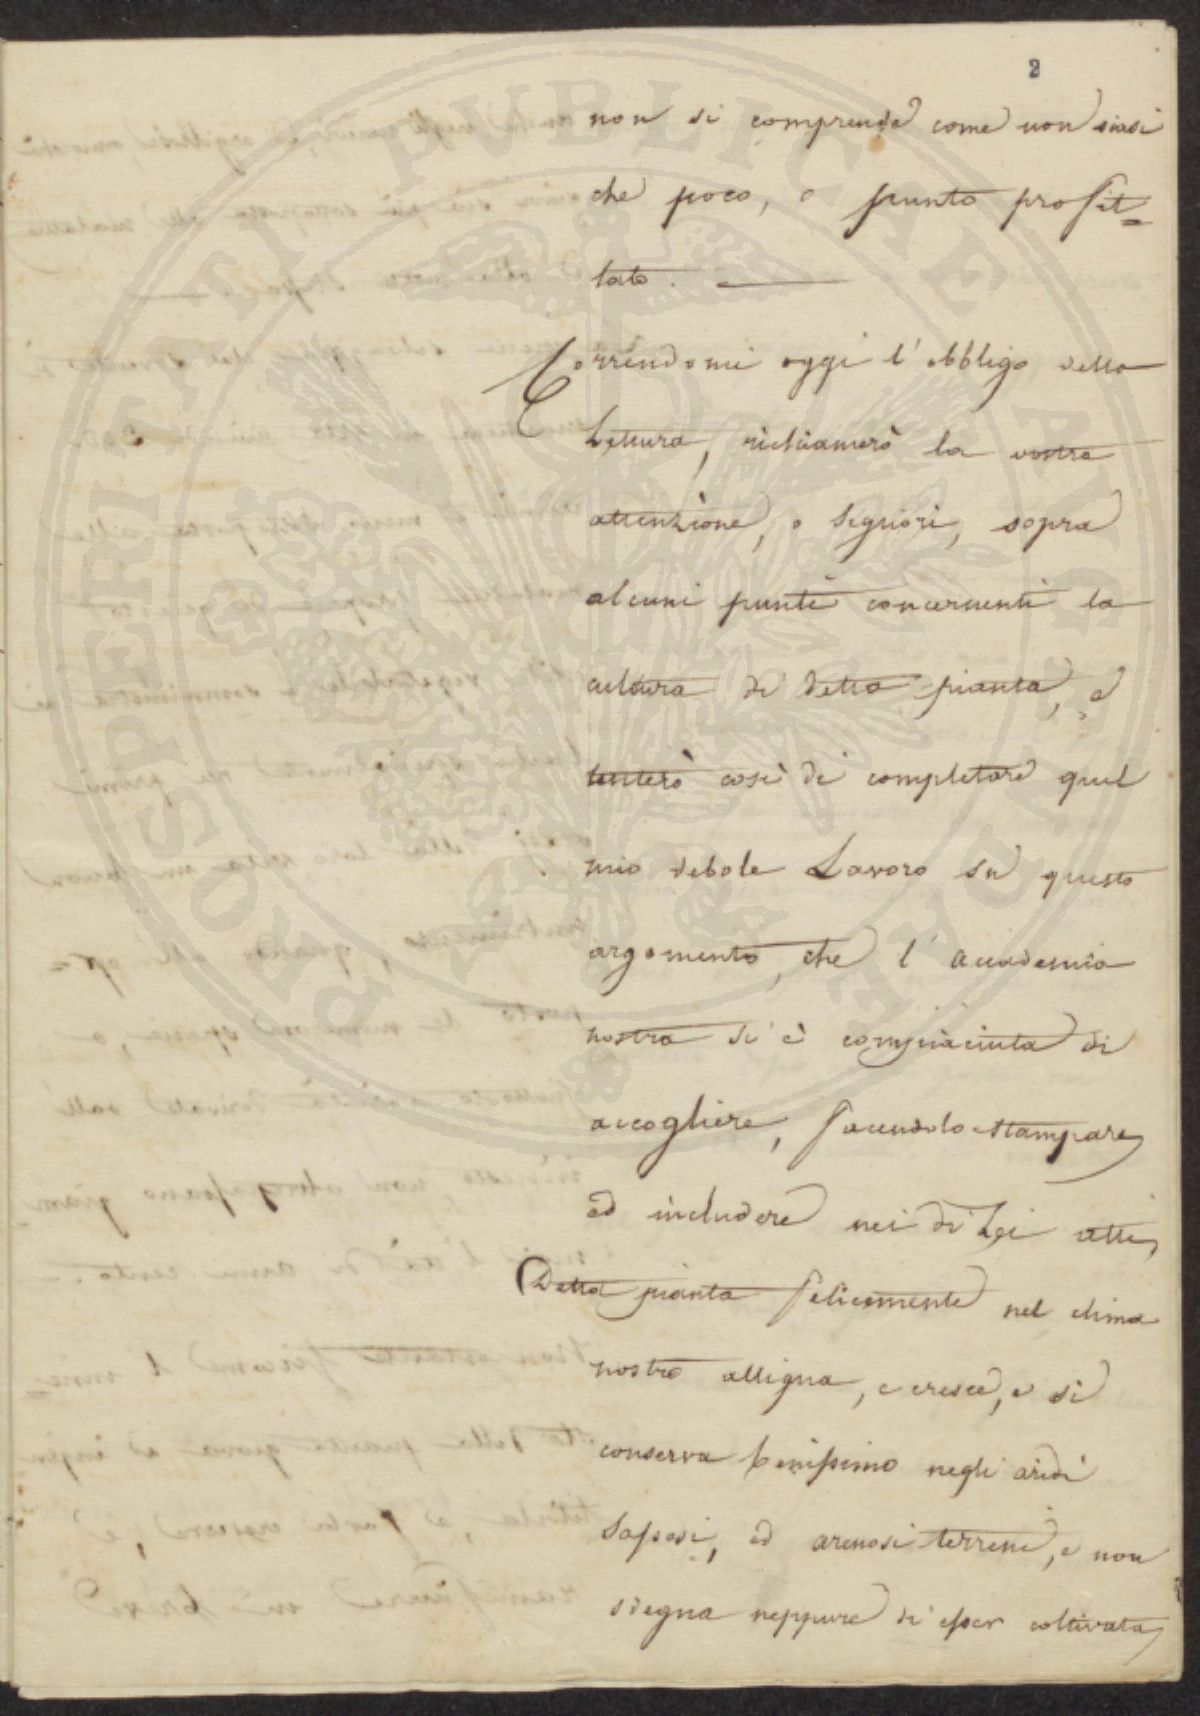 2
non si comprende come non siasi
che poco, o punto profit=
tato.
Correndomi oggi l'obbligo della
Lettura, richiamerò la vostra
attenzione, o Signori, sopra
alcuni punti concernenti la
cultura di detta pianta, e
tenterò così di completare quel
mio debole Lavoro su questo
argomento, che l'Accademia
nostra si è compiaciuta di
accogliere, facendolo stampare,
ed includere nei di Lei atti,
Detta pianta felicemente nel clima
nostro alligna, e cresce, e si
conserva benissimo negli aridi
sassosi, ed arenosi terreni, e non
sdegna neppure di esser coltivata,
PROSPERITATI PUBLICAE AUGENDAE